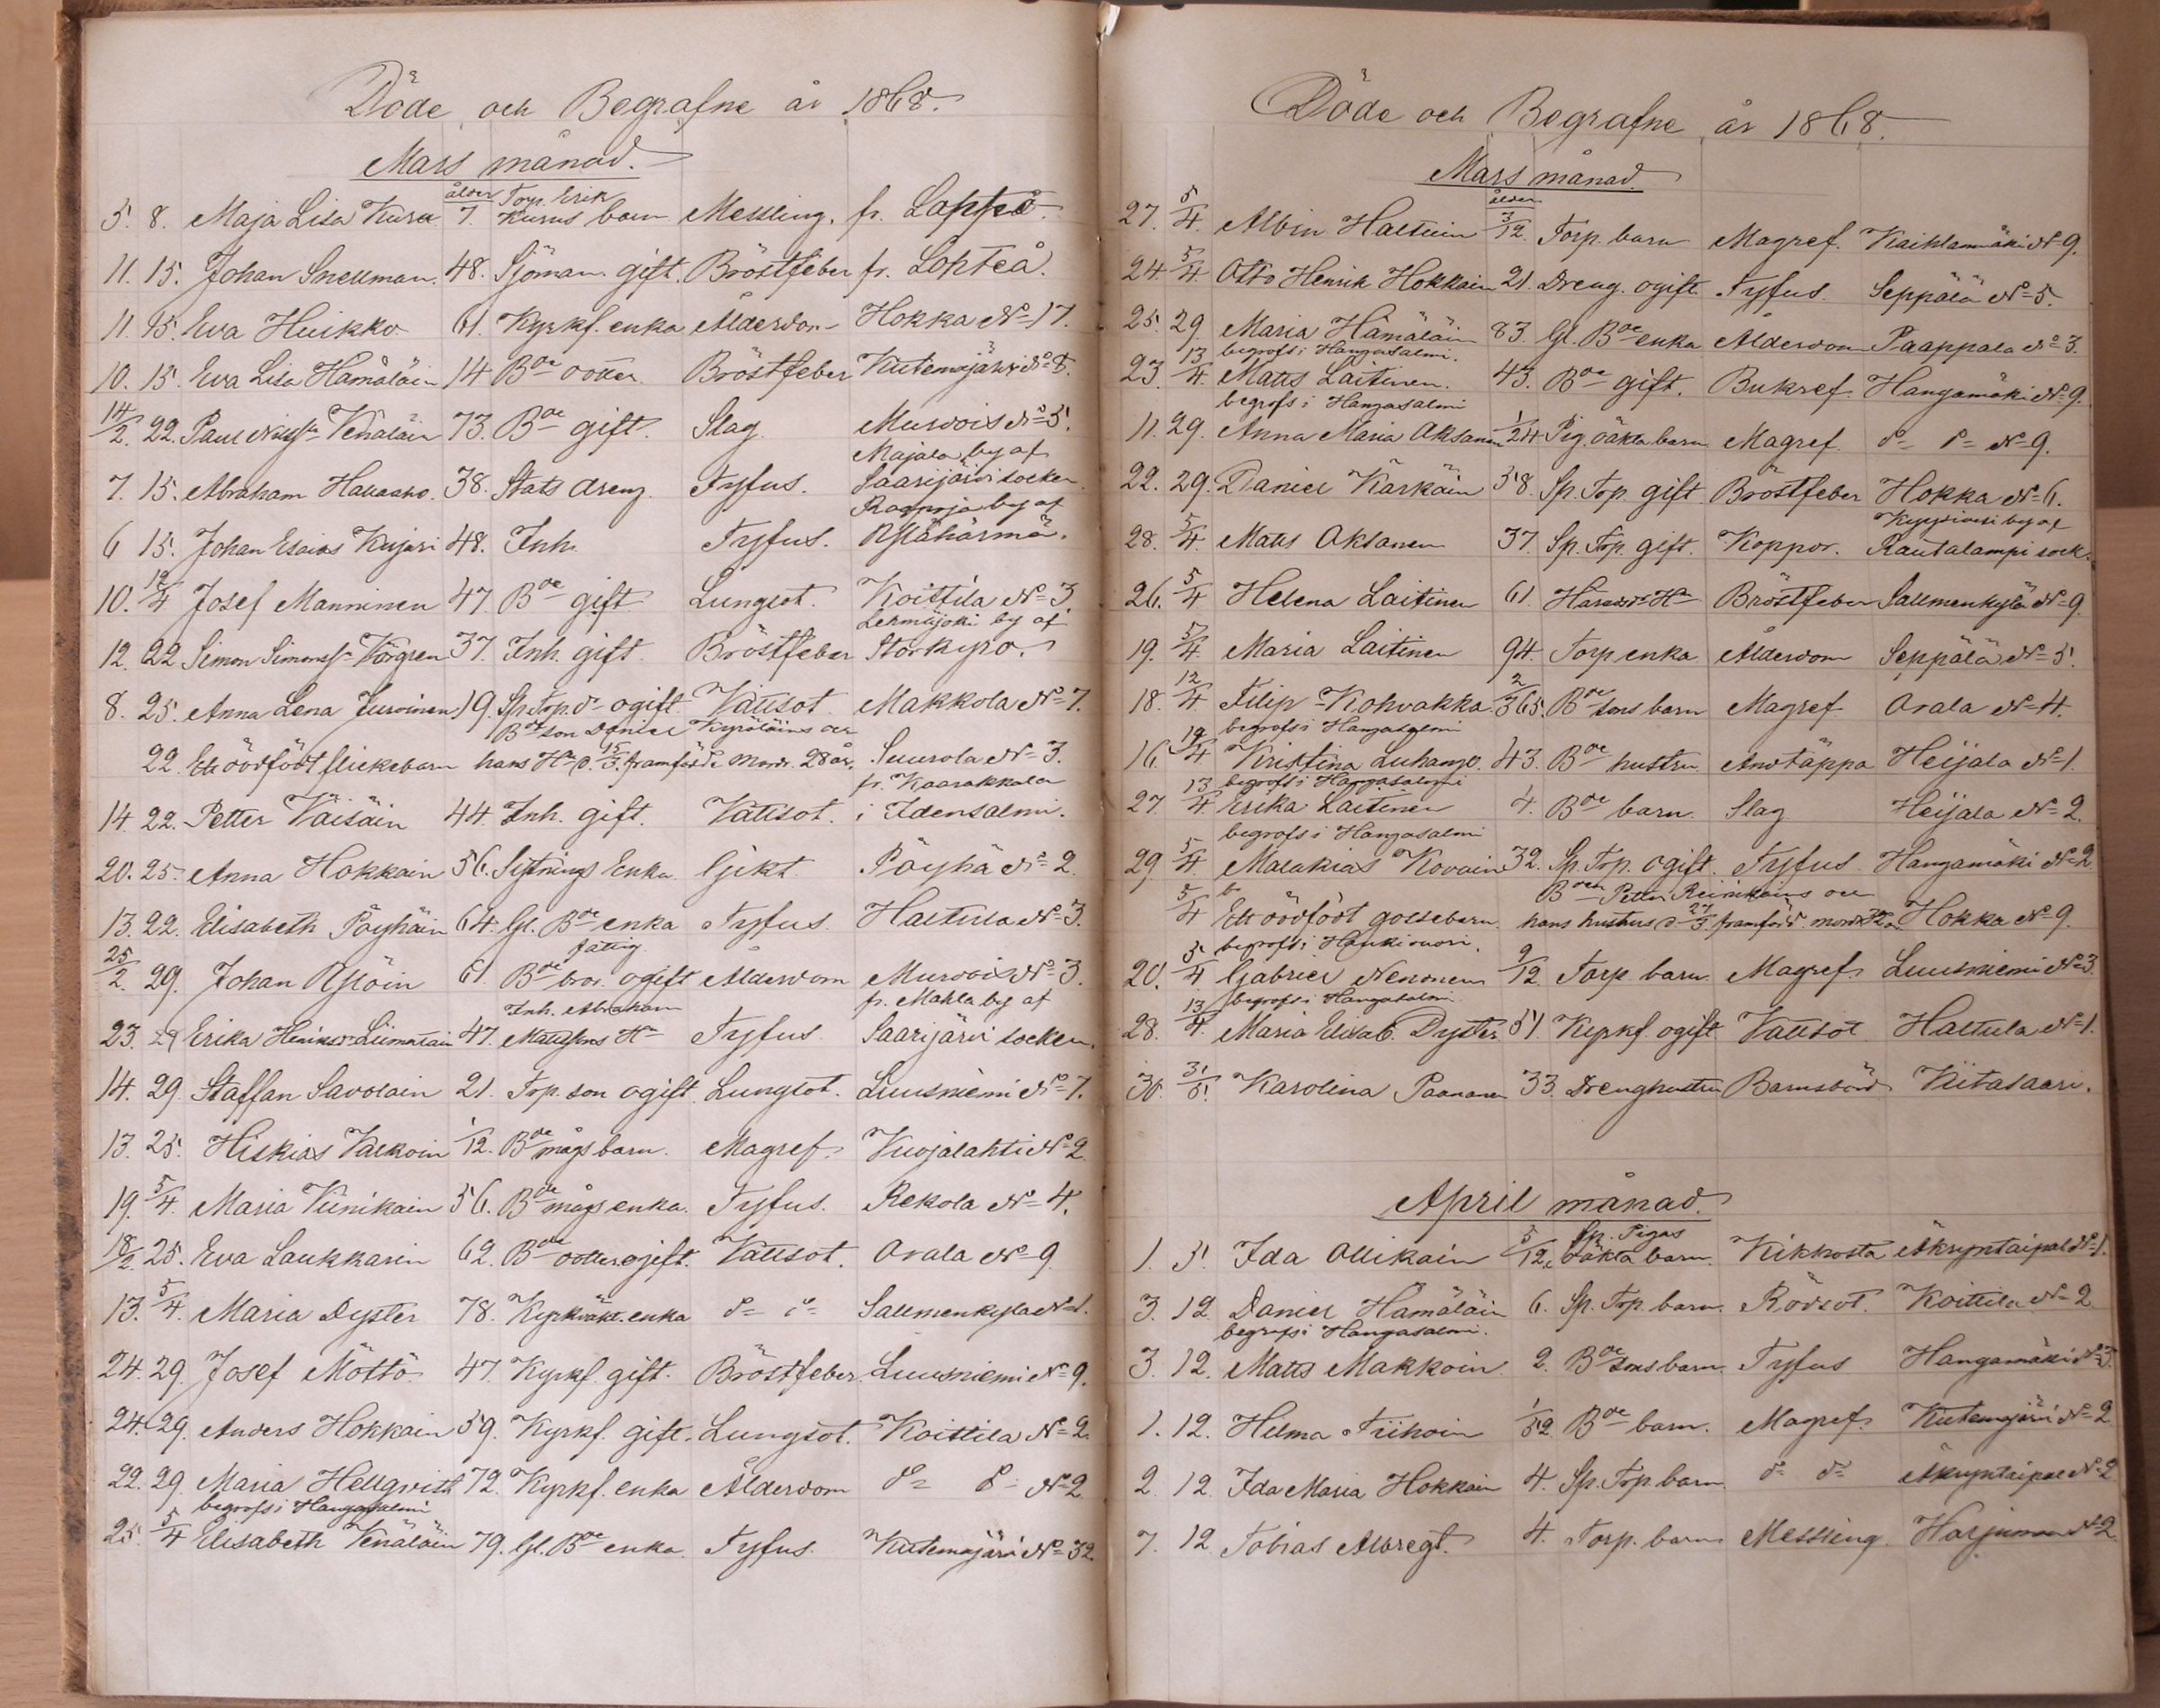 Döde och Begrafne år 1868.
Mars månad.
ålder Torp. Erik
5. 8. Maja Lisa Kura 7. Kuras barn Messling. fr. Lappå.
11. 15. Johan Snellman. 48. Sjöman. gift. Bröstfeber fr. Lohteå.
11. 15. Eva Huikko 61. Kyrkf. enka Ålderdom Hokka No 17.
10. 15. Eva Lisa Hämäläin 14 Bde dotter Bröstfeber Kutemajärvi No 8.
14/2. 22. Paul Nilss. Venäläin 73. Bde gift. Slag. Murdois No 5.
Majala by af
7. 15. Abraham Hallaaho. 38. Stats dreng. Tyfus. Saarijärvi socken
by af
6 15. Johan Esaias Kujari 48. Inh. Tyfus. Ylähärmä.
10. 12/4 Josef Manninen 47. Bde gift Lungsot. Koittila No 3.
Lehmäjoki by af
12. 22 Simon Simonss. Vörgren 37. Inh. gift Bröstfeber Storkyro.
8. 25. Anna Lena Juroinen 19. Sp. Torp. dr ogift Vattsot Makkola No 7.
Bde son Daniel Kyröläins och
22. Ett dödfödt flickebarn hans Hu d. 15/3. framfödde Modr. 28 år. Suurola No 3.
fr. Kaarakkala
14 22. Petter Väisäin 44. Inh. gift. Vattsot. i Idensalmi.
20. 25. Anna Hokkain 56. Sytnings Enka Gikt. Pöyhä No 2.
13. 22. Elisabeth Pöyhäin 64. Gl. Bde enka Tyfus. Halttula No 3.
fattig
25/2. 29. Johan Ylöin 61. Bde bror. ogift Ålderdom Murdois No 3.
Inh. Abraham fr. Mahla by af
23. 29 Erika Henriksd. Liimatain 47. Mattssons Hu Tyfus Saarijärvi socken.
14. 29. Staffan Savolain 21. Torp. son ogift Lungsot. Luusniemi No 7.
13. 25. Hiskias Valkoin 1/12. Bde mågs barn. Magref. Vuojalahti No 2.
19. 5/4. Maria Viinikain 56. Bde mågs enka. Tyfus. Rekola No 4.
18/2. 25. Eva Laukkarin 62. Bde dotter ogift. Vattsot. Orala No 9.
13. 5/4. Maria Dyster 78. Kyrkväkt. enka do do Salmenkylä No 1.
24. 29. Josef Möttö 47. Kyrkf. gift. Bröstfeber. Luusniemi No 9.
24. 29. Anders Hokkain 59. Kyrkf. gift. Lungsot. Koittila No 2.
22. 29. Maria Hellqvist 72. Kyrkf. enka Ålderdom do do No 2.
begrofs i Hangasalmi
25. 5/4 Elisabeth Venäläin 79. Gl. Bde enka. Tyfus. Kutemajärvi No 32.
Döde och Begrafne år 1868.
Mars månad.
ålder
27. 5/4. Albin Halttuin 3/12. Torp. barn Magref. Kaihlamäki No 9.
24. 5/4. Otto Henrik Hokkain 21. Dreng. ogift. Tyfus. Seppälä No 5.
25. 29. Maria Hämäläin 83. Gl. Bde enka Ålderdom Paappala No 3.
begrofs i Hangasalmi.
23. 13/4. Matts Laitinen. 43. Bde gift. Bukref. Hangamäki No 9.
begrofs i Hangasalmi
11. 29. Anna Maria Oksanen 1/24 Pig. oäkta barn Magref. do do No 9.
22. 29. Daniel Kärkäin 58. Sp. Torp. gift Bröstfeber Hokka No 6.
by af
28. 5/4. Matts Oksanen 37. Sp. Torp. gift. Koppor. Rautalampi sock.
26. 5/4 Helena Laitinen 61 Hu Bröstfeber Salmenkylä No 9.
19. 5/4 Maria Laitinen 94. Torp. enka Ålderdom Seppälä No 5.
18. 12/4 Filip Kohvakka 2/365. Bde sons barn Magref Orala No 4.
begrofs i Hangasalmi
16. 19/4 Kristina Luhanp. 43. Bde hustru Andtäppa Heijala No 1.
begrofs i Hangasalmi
27. 13/4 Erika Laitinen 4. Bde barn. Slag Heijala No 2.
begrofs i Hangasalmi
29. 5/4. Malakias Kovain 32. Sp. Torp. ogift. Tyfus Hangamäki No 2.
Bden Petter Reinikains och
5/4 Ett dödfödt gossebarn. hans hustrus d. 27/3. framfödd. modr Hokka No 9.
begrofs i Haukivuori.
20. 5/4 Gabriel Nenonen 9/12. Torp. barn Magref. Luusniemi No 3.
begrofs i Hangasalmi
28. 13/4. Maria Elisab. Dyster 51. Kyrkf. ogift Vattsot Halttula No 1.
30. 31/5. Karolina Paananen 33. Drenghustru Barnsbörd Viitasaari.
April månad.
Sp. Pigas
1. 5. Ida Ollikain 5/12. oäkta barn. Kikhosta Äkryntaipal No 1.
3. 12. Daniel Hämäläin 6. Sp. Torp. barn. Rödsot. Koittila No 2
begrofs i Hangasalmi.
3. 12. Matts Makkoin 2. Bde sons barn. Tyfus Hangamäki No 3.
1. 12. Hilma Tiihoin 1/52 Bde barn. Magref. Kutemajärvi No 2
2. 12. Ida Maria Hokkain 4. Sp. Torp. barn do do Äkryntaipal No 2
7. 12 Tobias Albregt. 4. Torp. barn Messling. Harjumaa No 2